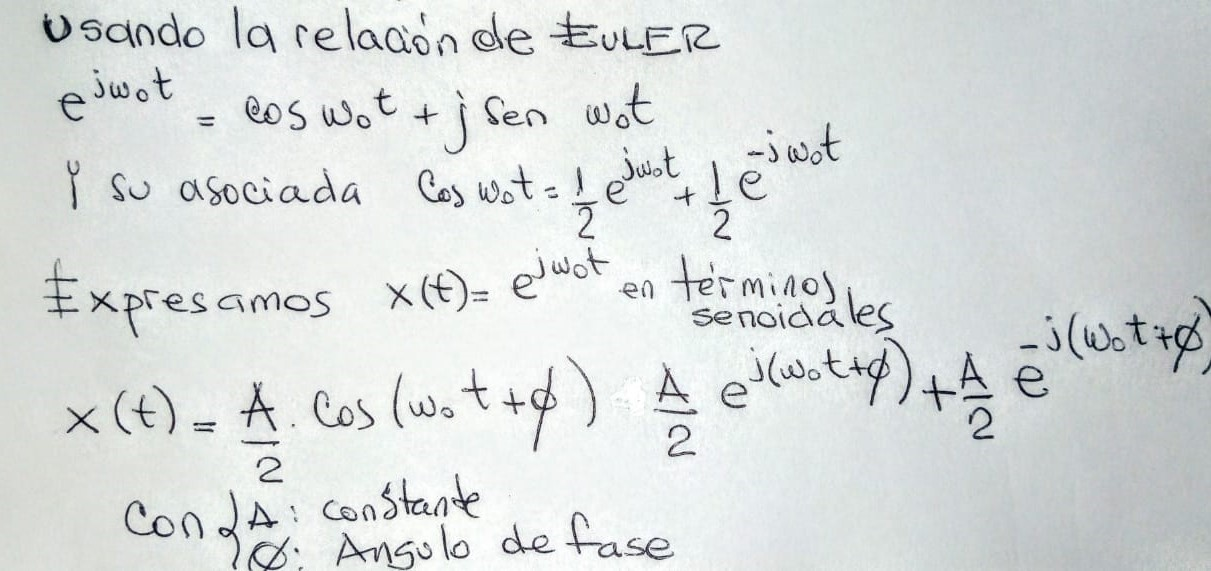 Usando la relación de EULER
e^{jω₀t} = cos ω₀t + j sen ω₀t
Y su asociada Cos ω₀t = 1/2 e^{jω₀t} + 1/2 e^{-jω₀t}
Expresamos x(t) = e^{jω₀t} en términos senoidales
x(t) = A/2 . Cos (ω₀t + ϕ) A/2 e^{j(ω₀t+ϕ)} + A/2 e^{-j(ω₀t+ϕ)}
Con { A: constante
Ø: Angulo de fase